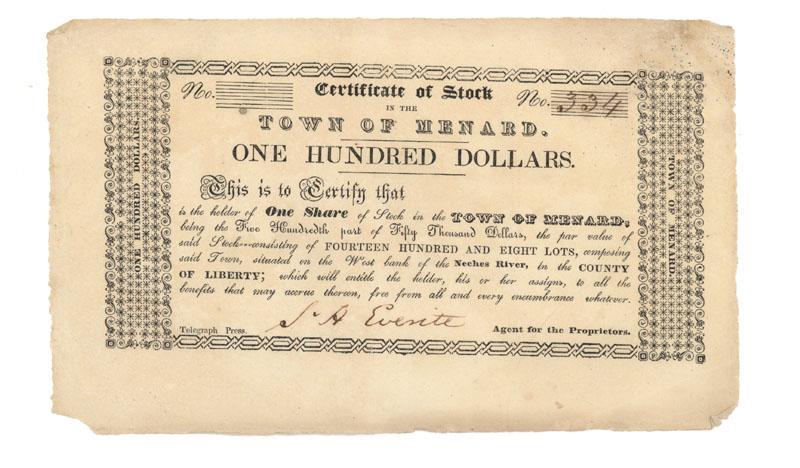 No.
Certificate of Stock
No. 334
IN THE
TOWN OF MENARD.
ONE HUNDRED DOLLARS.
This is to Certify that
is the holder of One Share of Stock in the TOWN OF MENARD;
being the Five Hundredth part of Fifty Thousand Dollars, the par value of
said Stock---consisting of FOURTEEN HUNDRED AND EIGHT LOTS, composing
said Town, situated on the West bank of the Neches River, in the COUNTY
OF LIBERTY; which will entitle the holder, his or her assigns, to all the
benefits that may accrue thereon, free from all and every encumbrance whatever.
Telegraph Press.
S. H Everite
Agent for the Proprietors.
ONE HUNDRED DOLLARS.
TOWN OF MENARD.